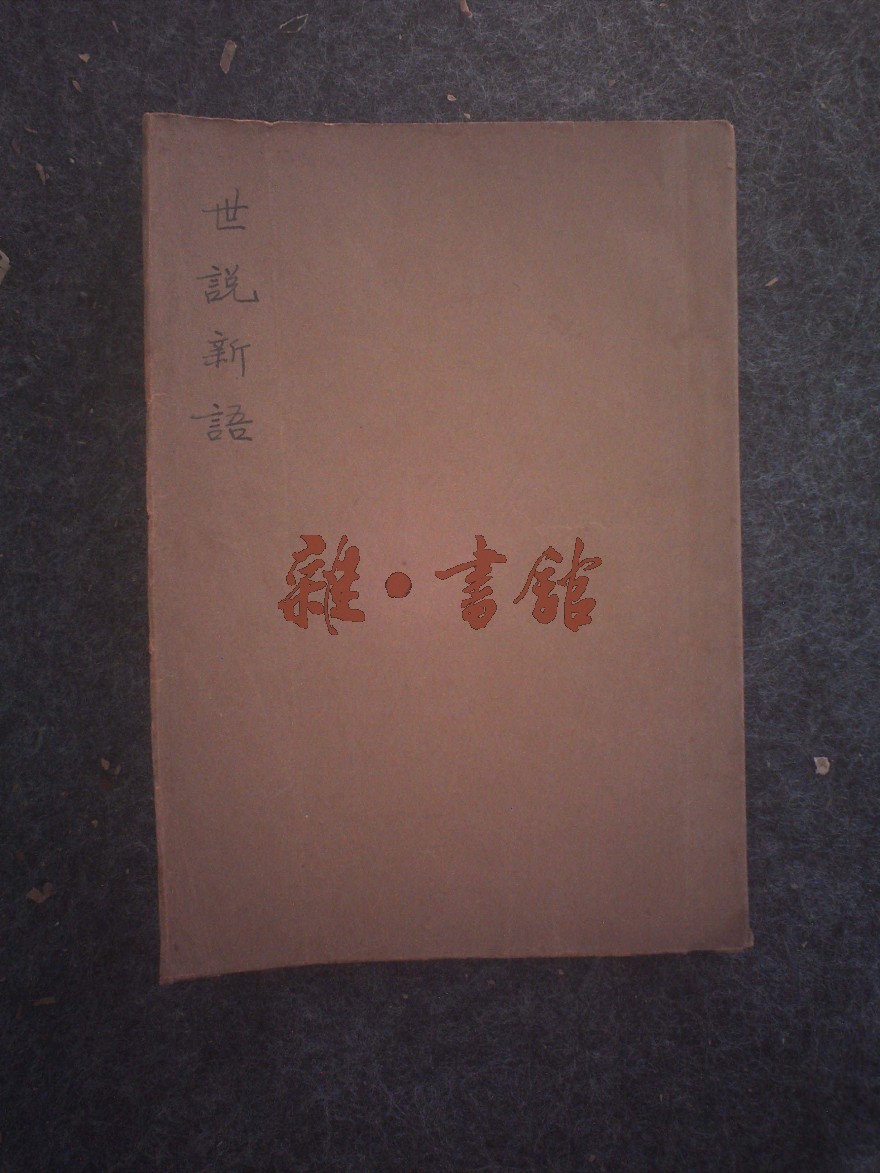 世説新語
雜·書館